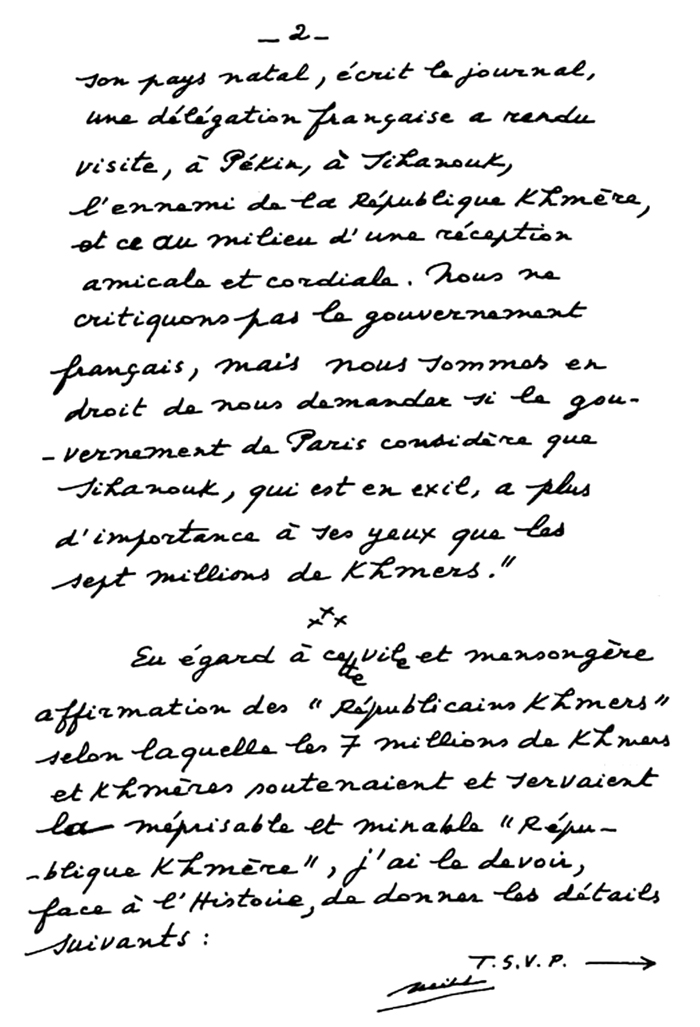 _ 2 _
son pays natal, écrit le journal,
une délégation française a rendu
visite, à Pékin, à Sihanouk,
l'ennemi de la République Khmère,
et ce au milieu d'une réception
amicale et cordiale. Nous ne
critiquons pas le gouvernement
français, mais nous sommes en
droit de nous demander si le gou-
-vernement de Paris considère que
Sihanouk, qui est en exil, a plus
d'importance à ses yeux que les
sept millions de Khmers."
xxx
Eu égard à cette vile et mensongère
affirmation des "Républicains Khmers"
selon laquelle les 7 millions de Khmers
et Khmères soutenaient et servaient
la méprisable et minable "Répu-
-blique Khmère", j'ai le devoir,
face à l'Histoire, de donner les détails
suivants :
T.S.V.P. →